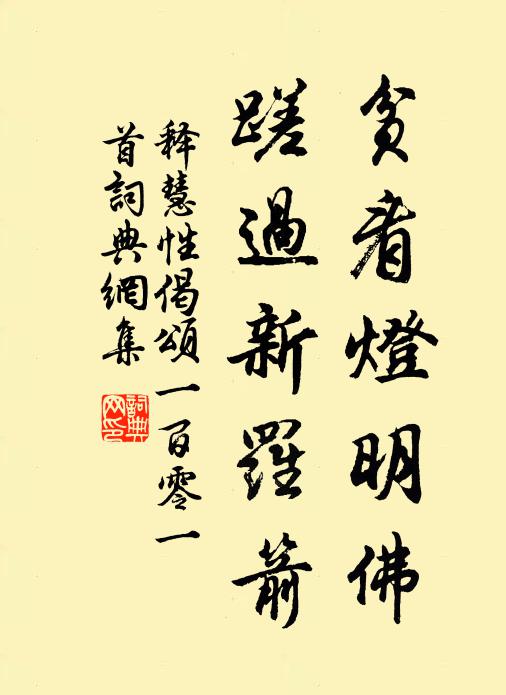 貧看燈明佛
蹉過新羅箭
释慧性偈頌一百零一
首詞典網集
詞典網印